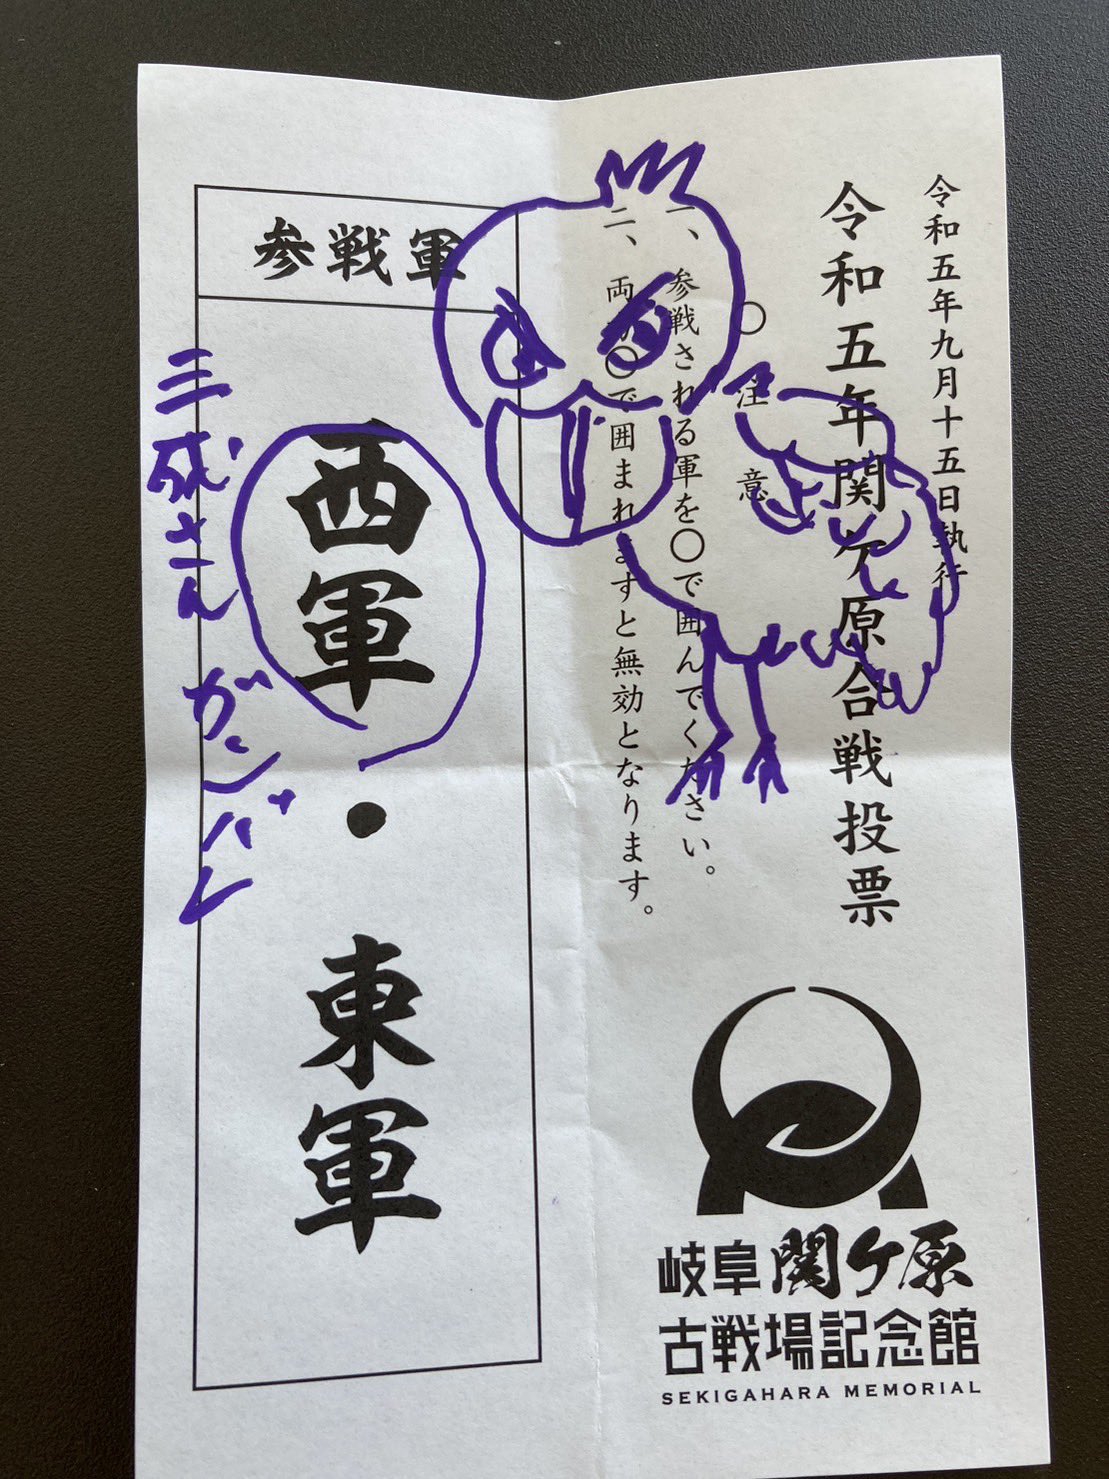 令和五年九月十五日執行
令和五年関ケ原合戦投票
〇注意
一、参戦される軍を〇で囲んでください。
二、両方〇で囲まれますと無効となります。
参戦軍
西軍・東軍
三成さん ガンバレ
岐阜関ケ原
古戦場記念館
SEKIGAHARA MEMORIAL